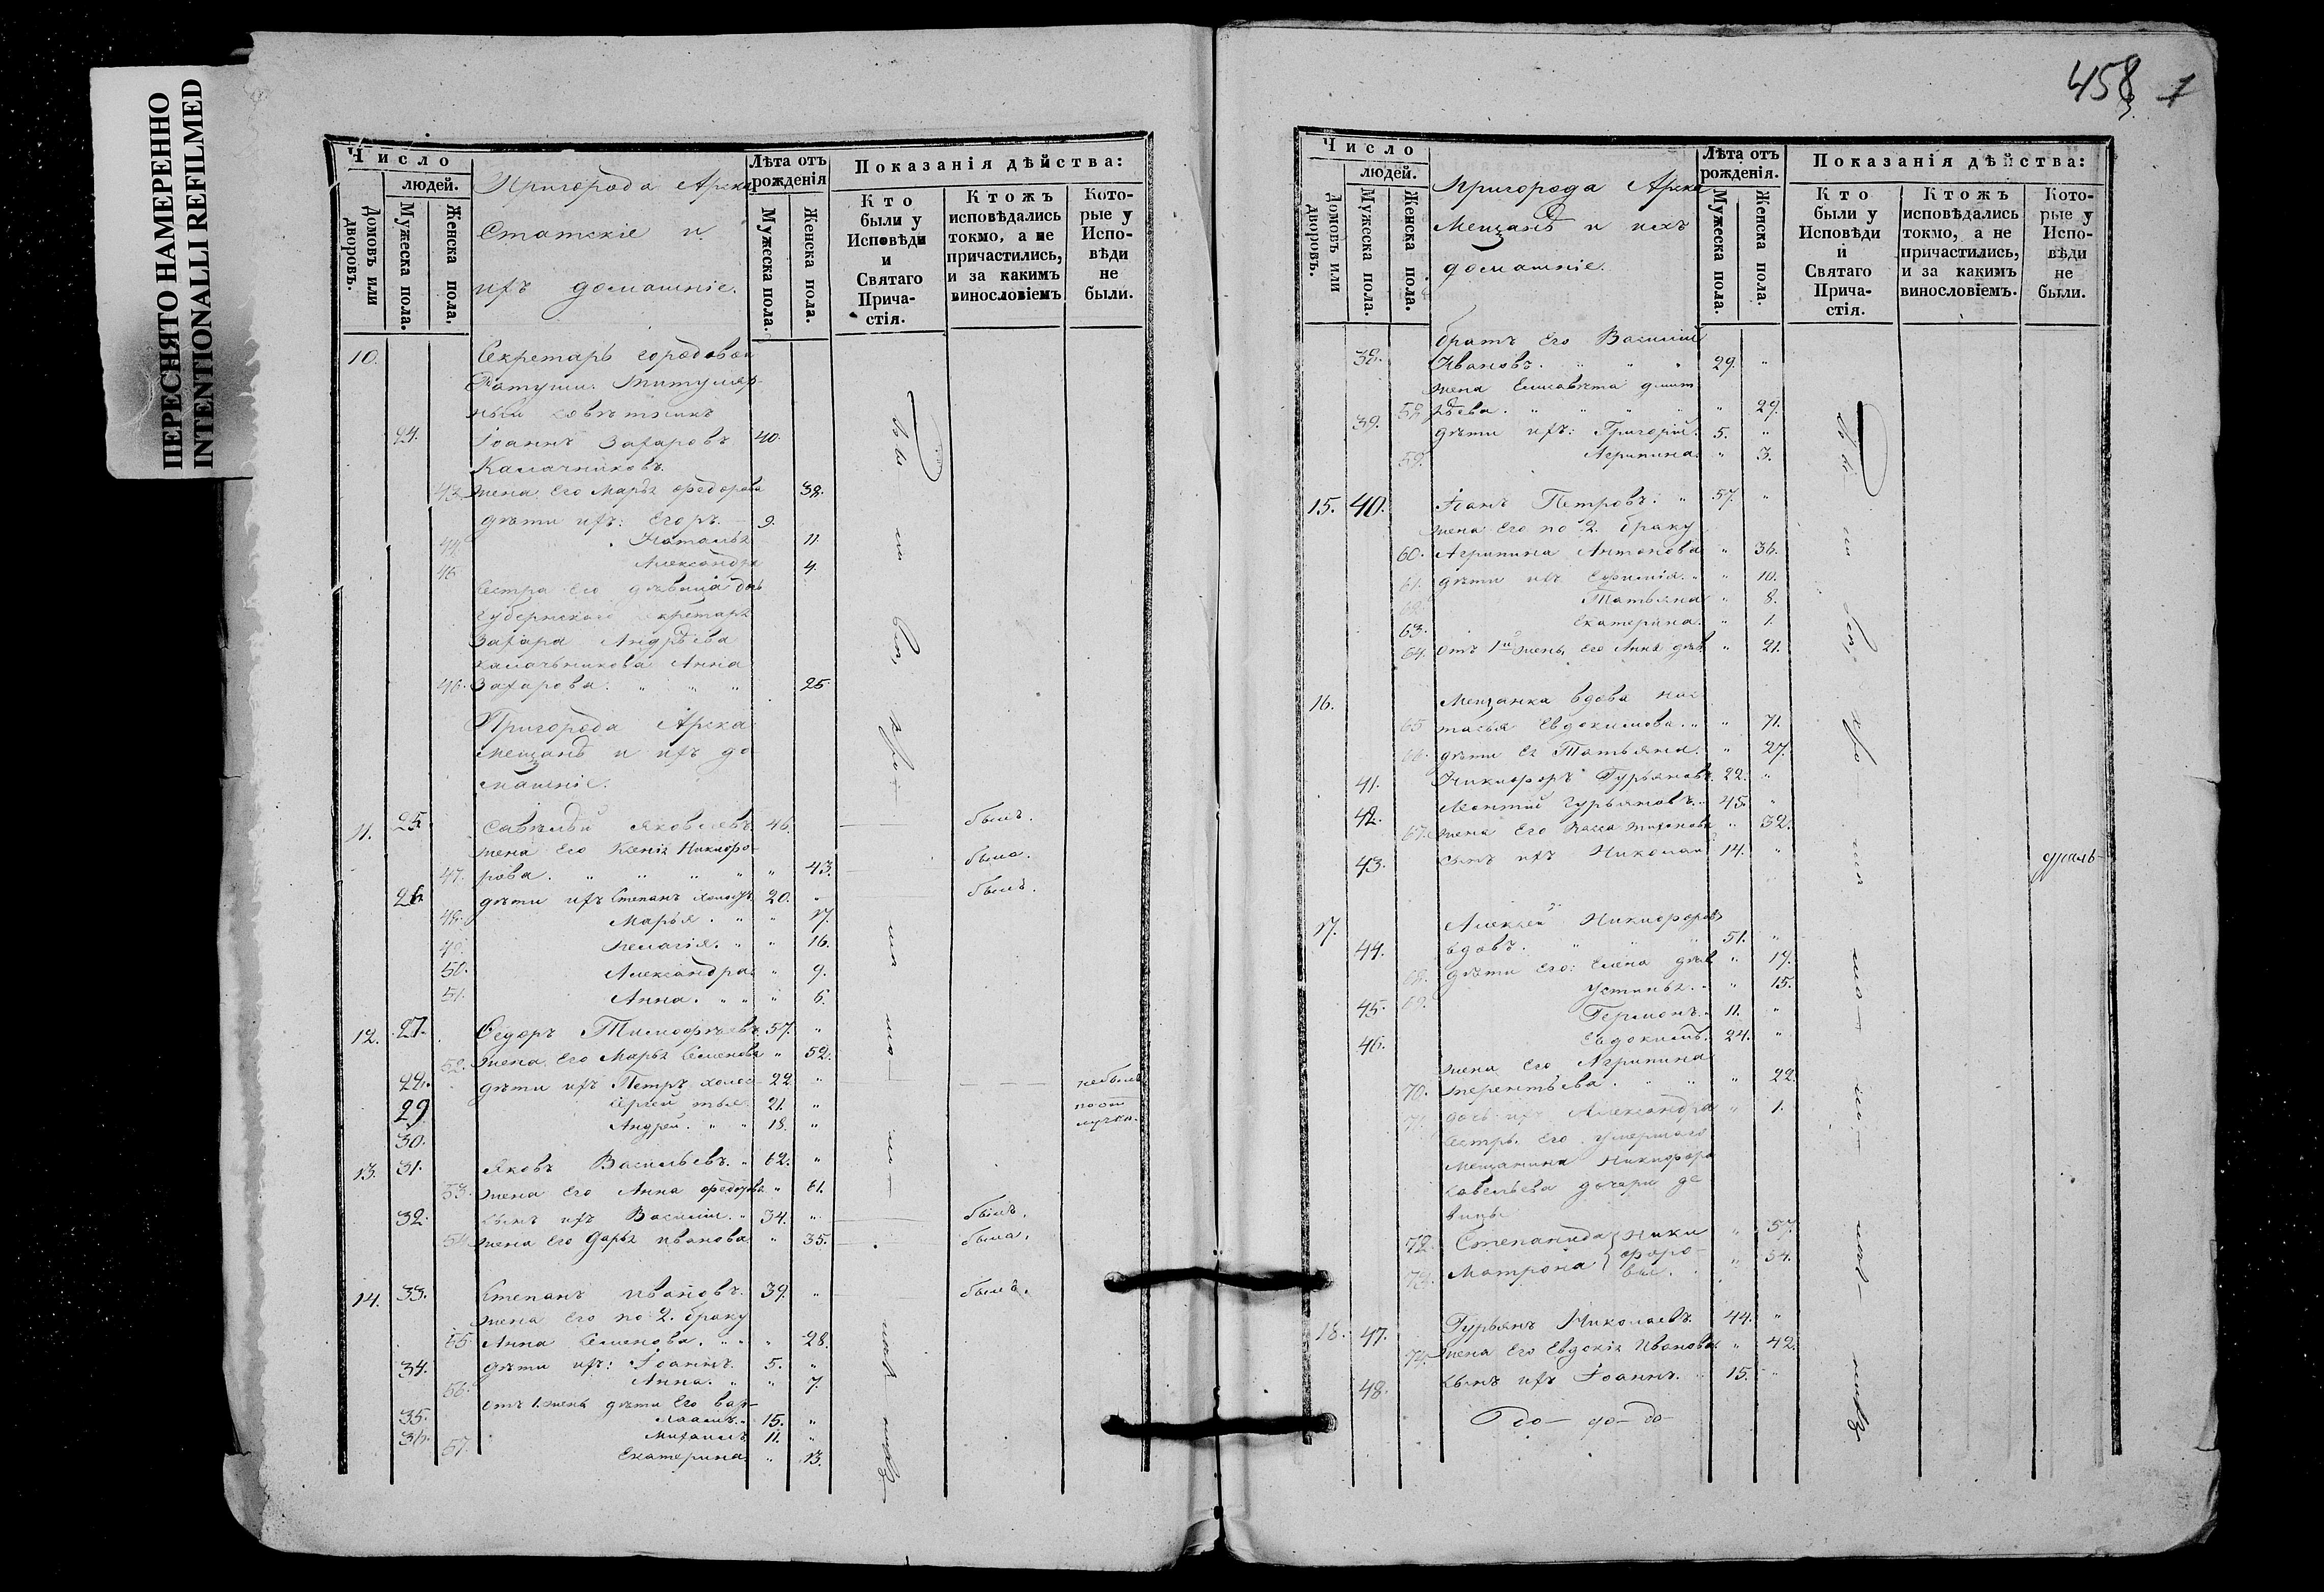 ПЕРЕСНЯТО НАМЕРЕННО
INTENTIONALLI REFILMED
Число
людей.
Домовъ или дворовъ.
Мужеска пола.
Женска пола.
Пригорода Арска
Статскіе и
ихъ домашніе.
Лѣта отъ рожденія
Мужеска пола.
Женска пола.
Показанія дѣйства:
Кто были у Исповѣди и Святаго Прича-стія.
Ктожъ исповѣдались токмо, а не причастились, и за какимъ винословіемъ
Кото-рые у Испо-вѣди не были.
10. Секретарь городовой
Ратуши Титуляр-
ный совѣтникъ
24. Іоаннъ Захаровъ 40.
Калачниковъ.
43. жена Его Марья Федорова 38.
дѣти ихъ: Егоръ. 9.
44. Наталья 11
45 Александра 4.
Сестра Его дѣвица дочь
Губернскаго секретаря
Захара Андрѣева
Калачьникова Анна
46. Захарова. " " " 25.
Пригорода Арска
мещанѣ и ихъ до-
машніе.
11. 25. Савелій Яковлевъ 46. былъ.
жена Его Ксенія Никифо-
47. рова. " " " " " 43. была.
26. дѣти ихъ Степанъ холостъ 20. " былъ.
48. Марья. " " 17.
49. Пелагія. " " 16.
50. Александра " 9.
51. Анна. " " " 6.
12. 27. Федоръ Тимофѣевъ. 57. "
52. жена Его Марья Семенова " 52.
28. дѣти ихъ Петръ холос- 22 " небылъ
29 Сергей 21. " по от
30. Андрей. " " 18. " лучки.
13. 31. Яковъ Васильевъ. " 62. "
53. жена Его Анна Федорова " 61.
32. сынъ ихъ Василій. " 34. " былъ.
54. жена Его Дарья Иванова " 35. была.
14. 33. Степанъ Ивановъ. 39. " былъ.
жена Его по 2. браку
55 Анна Семенова. " " " 28.
34. дѣти ихъ: Іоаннъ. 5. "
56. Анна. " " 7.
отъ 1. жены дѣти Его Вар-
35. лаамъ. 15. "
36. Михаилъ. 11. "
57. Екатерина. " 13.
458
1
Число
людей.
Домовъ или дворовъ.
Мужеска пола.
Женска пола.
Пригорода Арска
Мещанѣ и ихъ
домашніе.
Лѣта отъ рожденія.
Мужеска пола.
Женска пола.
Показанія дѣйства:
Кто были у Исповѣди и Святаго Прича-стія.
Ктожъ исповѣдались токмо, а не причастились, и за какимъ винословіемъ.
Кото-рые у Испо-вѣди не были.
братъ Его Василій
38. Ивановъ. " " " 29. "
жена Елисавѣта Дмит
58. рѣева. " " " " " 29.
39. дѣти ихъ: Григорій. 5. "
59. Агрипина. " 3.
15. 40. Іоанъ Петровъ. " 57. "
жена Его по 2. браку
60. Агрипина Антонова " 36.
61. дѣти ихъ Ефимія. " " 10.
62. Татьяна " 8.
63. Екатерина. " 1.
64. Отъ 1й жены Его Анна дѣв " 21.
16. Мещанка вдова Нас
65 тасья Евдокимова. " " 71.
66. дѣти Ея Татьяна. " 27.
41. Никифоръ Гурьяновъ. 22. "
42. Леонтій Гурьяновъ. 45. "
67. жена Его " 32.
43. сынъ ихъ Николай 14. "
17. Алексей Никифоровъ
44. вдовъ. " " " 51. "
68. дѣти Его: Елена дѣв " 19.
69. Устинья. " " 15.
45. Германъ. " 11. "
46. Евдокимъ. 24. "
жена Его Агрипина
70. Терентьева. " " " 22.
71. дочь ихъ Александра " 1.
Сестры Его умершаго
Мещанина Никифора
Савельева дочери де
вицы
72. Степанида Ники " 57.
73. Матрона форо- " 54.
вы.
18. 47. Гурьянъ Николаевъ. 44. "
74. жена Его Евдокія Иванова " 42.
48. сынъ ихъ Іоаннъ. " 15. "